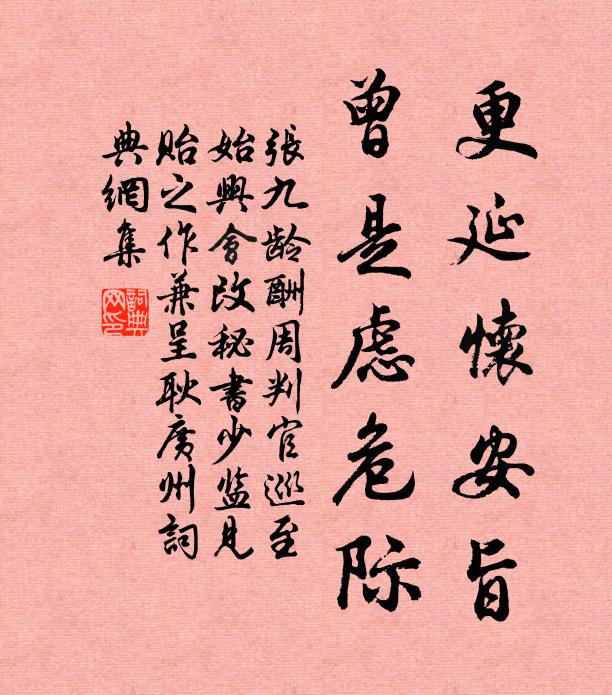 更延懷安旨
曾是慮危际
張九龄酬周判官巡至
始興會改秘書少监見
贻之作兼呈耿廣州詞
典網集
詞典
网印